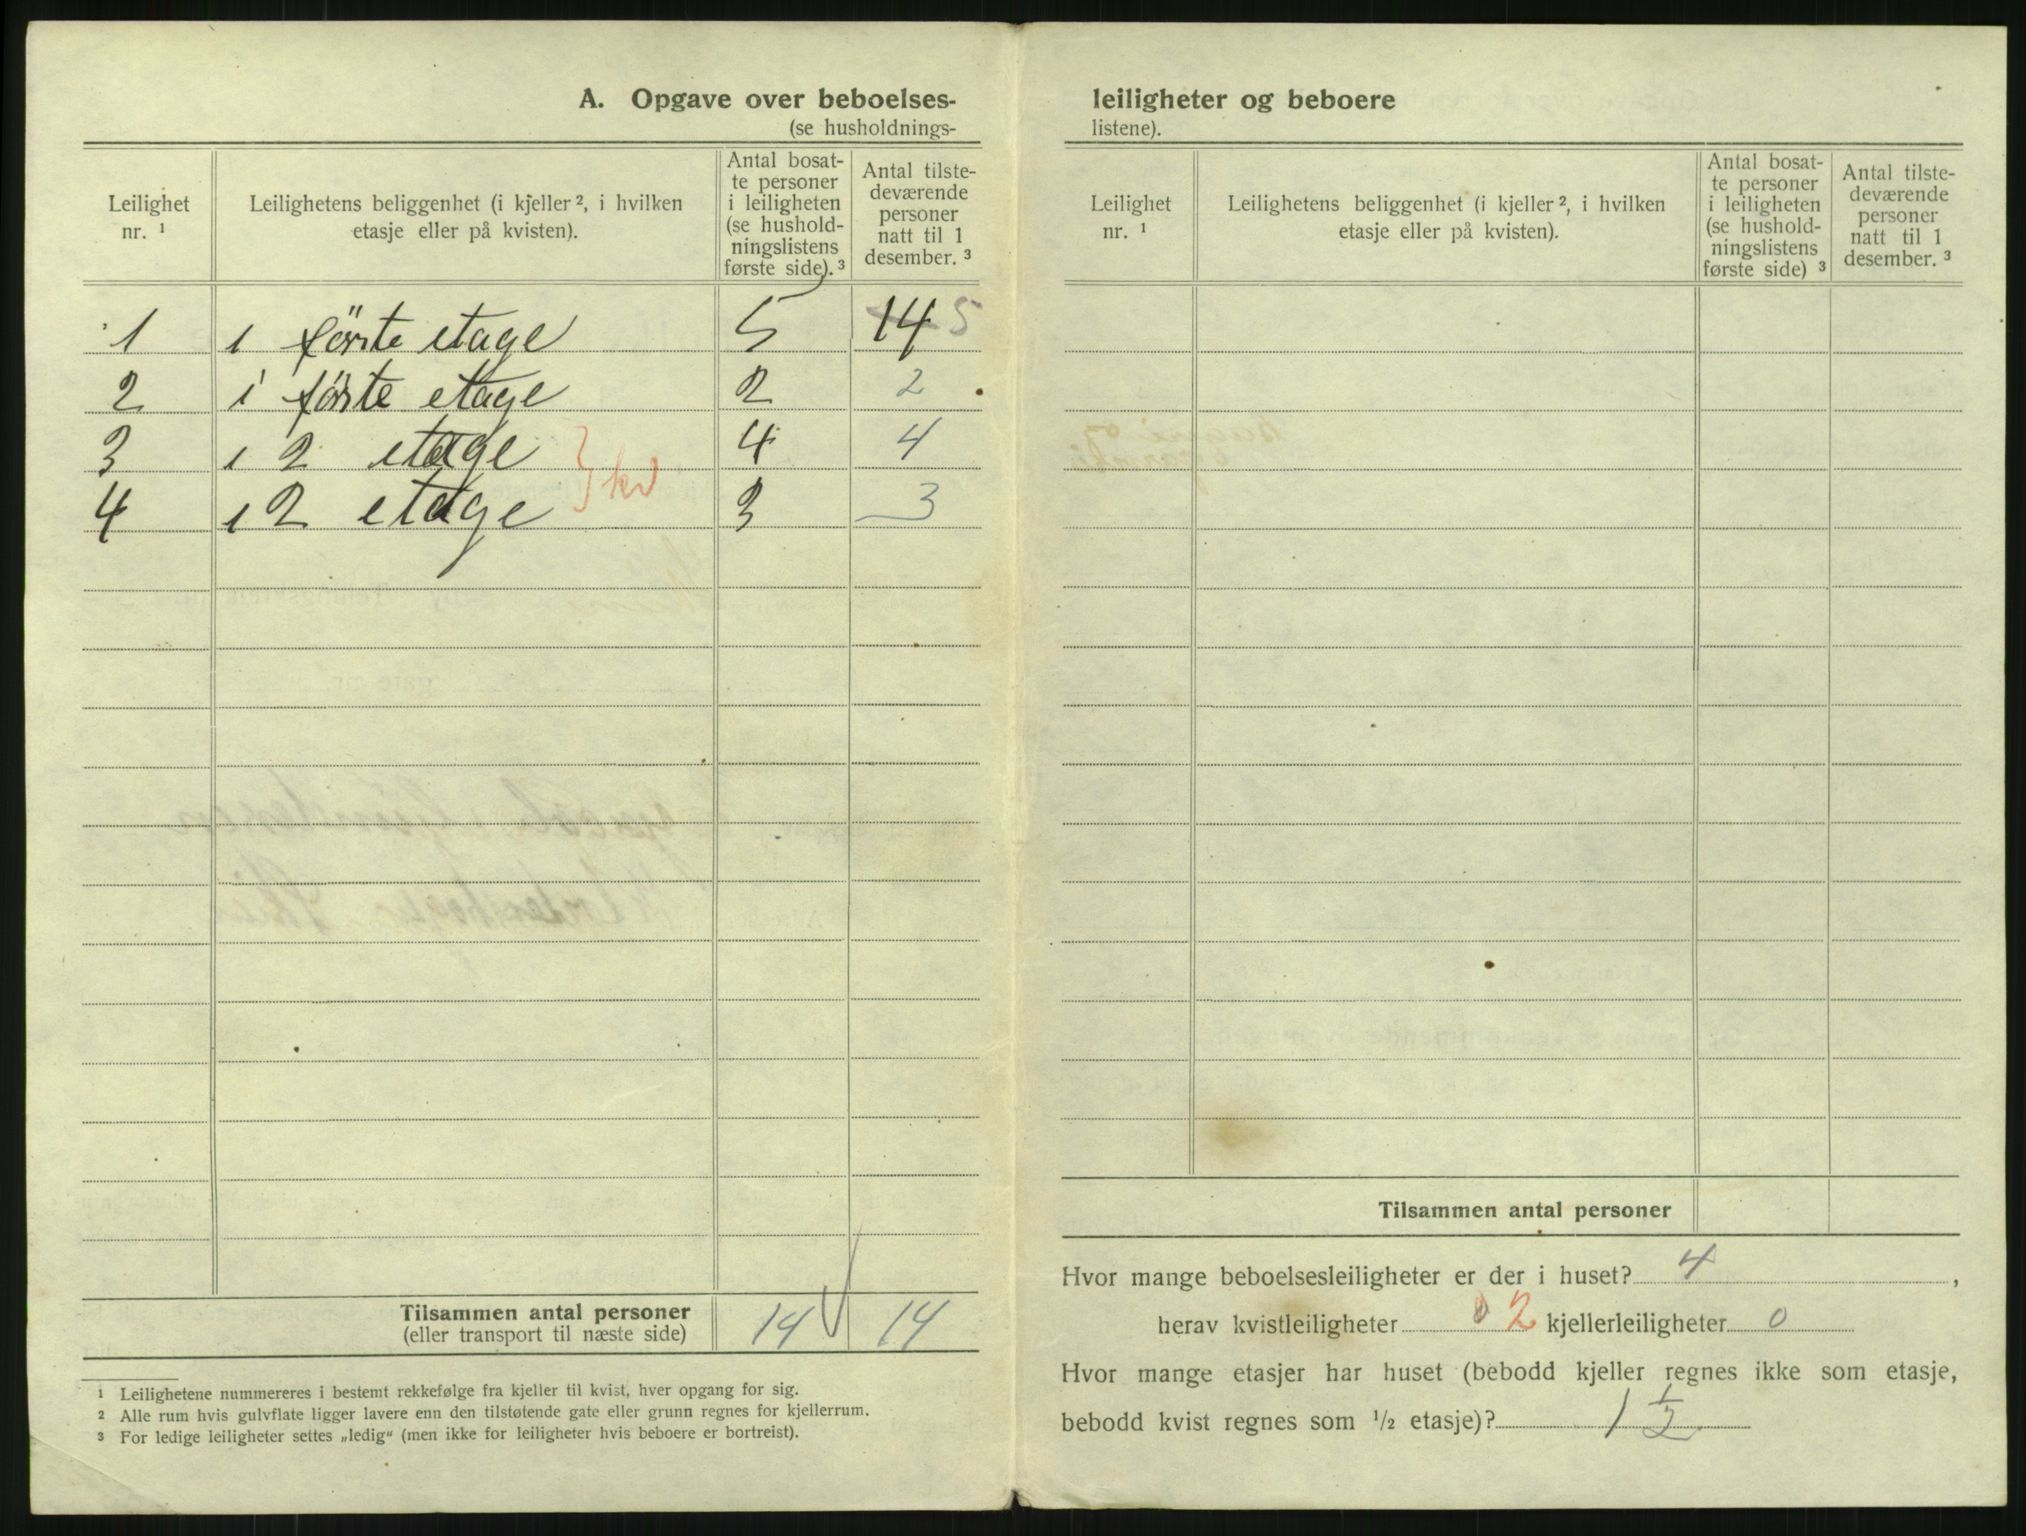 A. Opgave over beboelses-
(se husholdnings-
Leilighet nr. ¹
Leilighetens beliggenhet (i kjeller ², i hvilken etasje eller på kvisten).
Antal bosat-
te personer
i leiligheten
(se hushold-
ningslistens
første side). ³
Antal tilste-
deværende
personer
natt til 1
desember. ³
1 i første etage 5 14 5
2 i første etage 2 2
3 i 2 etage 4 4
4 i 2 etage 3 3
kv
Tilsammen antal personer
(eller transport til næste side) 14 14
¹ Leilighetene nummereres i bestemt rekkefølge fra kjeller til kvist, hver opgang for sig.
² Alle rum hvis gulvflate ligger lavere enn den tilstøtende gate eller grunn regnes for kjellerrum.
³ For ledige leiligheter settes „ledig“ (men ikke for leiligheter hvis beboere er bortreist).
leiligheter og beboere
listene).
Leilighet nr. ¹
Leilighetens beliggenhet (i kjeller ², i hvilken etasje eller på kvisten).
Antal bosat-
te personer
i leiligheten
(se hushold-
ningslistens
første side) ³
Antal tilste-
deværende
personer
natt til 1
desember. ³
Tilsammen antal personer
Hvor mange beboelsesleiligheter er der i huset? 4,
herav kvistleiligheter 0 2 kjellerleiligheter 0
Hvor mange etasjer har huset (bebodd kjeller regnes ikke som etasje,
bebodd kvist regnes som 1/2 etasje)? 1 1/2